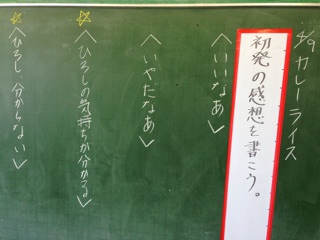 4/9 カレーライス
初発の感想を書こう。
〈いいなあ〉
〈いやだなあ〉
☆〈ひろしの気持ちが分かる〉
☆〈ひろし 分からない〉